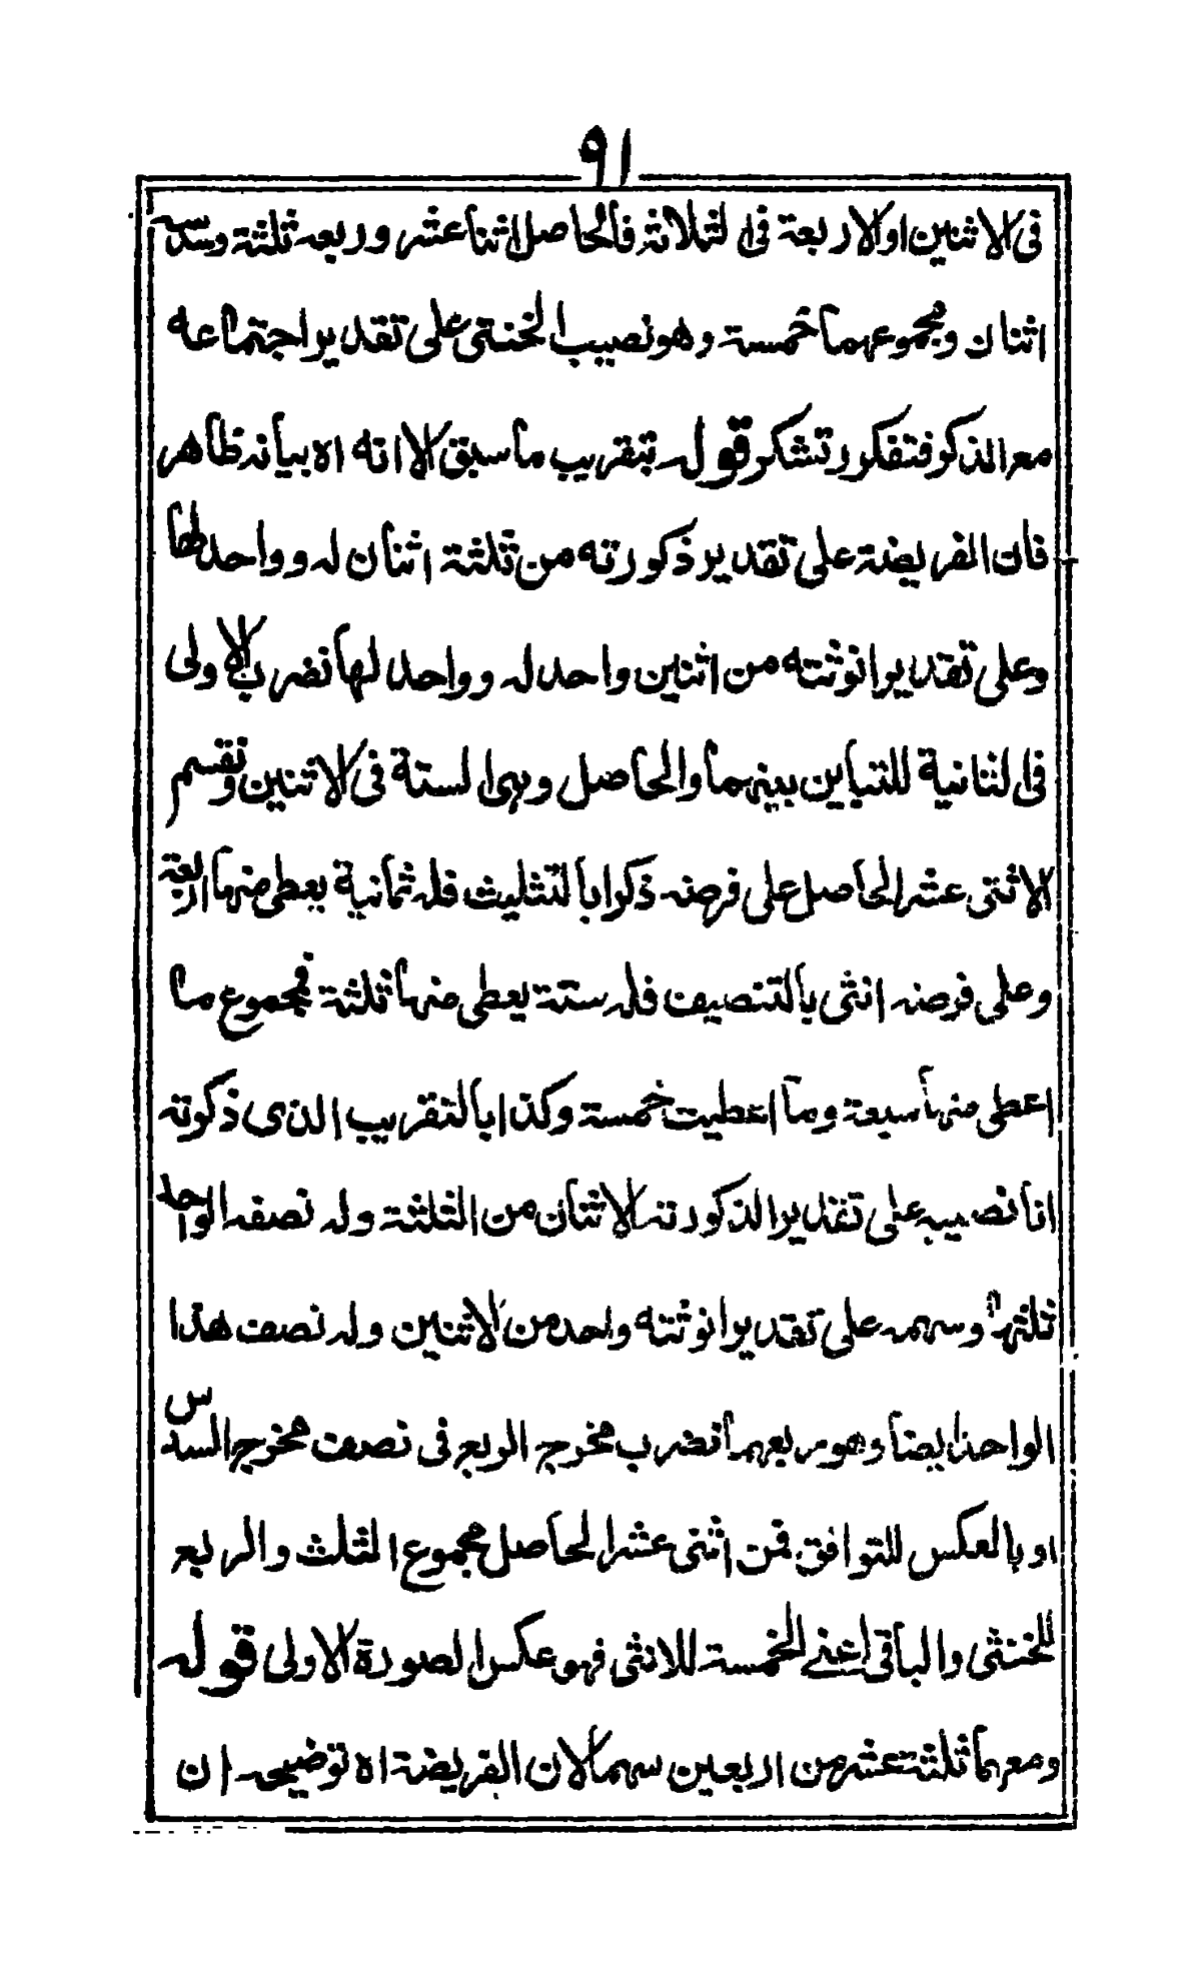 ٩١
فى الاثنين او الاربعة فى الثلاثة فالحاصل اثنا عشر وربعه ثلثة وسدسه
اثنان ومجموعهما خمسة وهو نصيب الخنثى على تقدير اجتماعه
مع الذكر فتفكر وتشكر قوله بتقريب ما سبق الا انه اه بيانه ظاهر
فان الفريضة على تقدير ذكورته من ثلثة اثنان له وواحد لها
وعلى تقدير انوثته من اثنين واحد له وواحد لها نضرب الاولى
فى الثانية للتباين بينهما والحاصل وهى الستة فى الاثنين ونقسم
الاثنى عشر الحاصل على فرضه ذكرا بالتثليث فله ثمانية يعطى منها اربعة
وعلى فرضه انثى بالتنصيف فله ستة يعطى منها ثلثة فمجموع ما
اعطى منها سبعة وما اعطيت خمسة وكذا بالتقريب الذى ذكرته
انا نصيبه على تقدير الذكورته الاثنان من الثلثة وله نصفه الواحد
ثلثها وسهمه على تقدير انوثته واحد من الاثنين وله نصف هذا
الواحد ايضا وهو ربعهما نضرب مخرج الربع فى نصف مخرج السدس
او بالعكس للتوافق فمن اثنى عشر الحاصل مجموع الثلث والربع
للخنثى والباقى اعنے الخمسة للانثى فهو عكس الصورة الاولى قوله
ومعهما ثلثة عشر من اربعين سهما لان الفريضة اه توضيحه ان